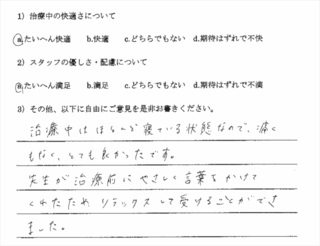 1）治療中の快適さについて
a.たいへん快適 b.快適 c.どちらでもない d.期待はずれで不快
2）スタッフの優しさ・配慮について
a.たいへん満足 b.満足 c.どちらでもない d.期待はずれで不満
3）その他、以下に自由にご意見を是非お書きください。
治療中はほとんど寝ている状態なので、痛く
もなく、とても良かったです。
先生が治療前にやさしく言葉をかけて
くれたためリラックスして受けることができ
ました。